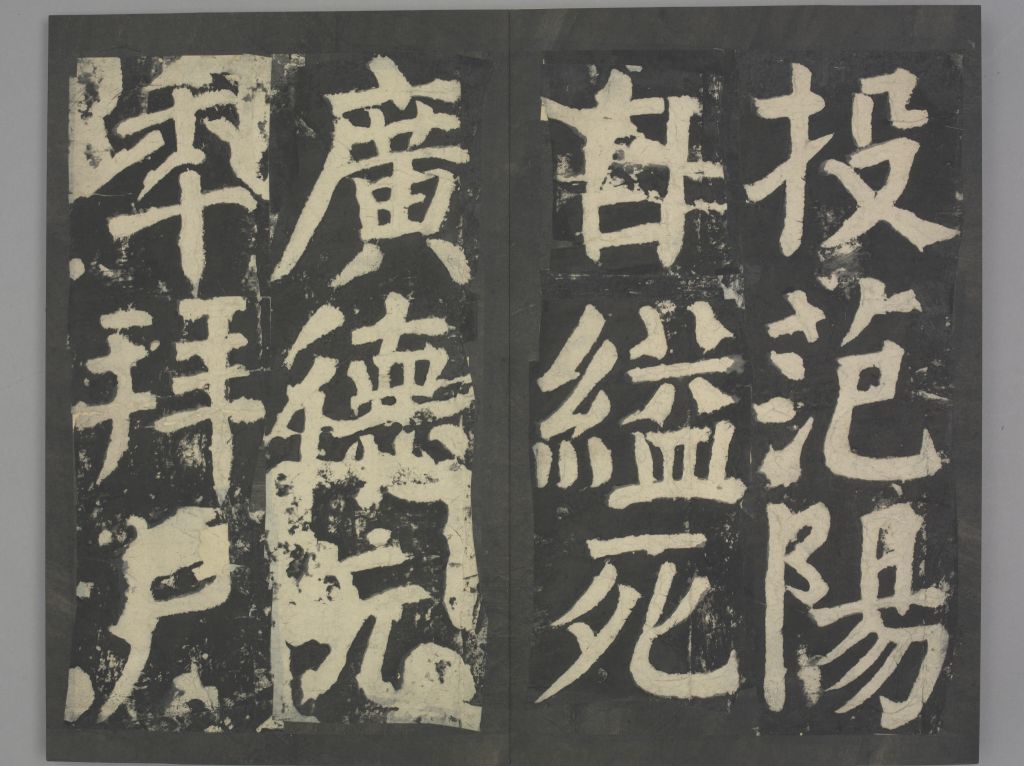 投范陽
自縊死
廣德元
年拜戶